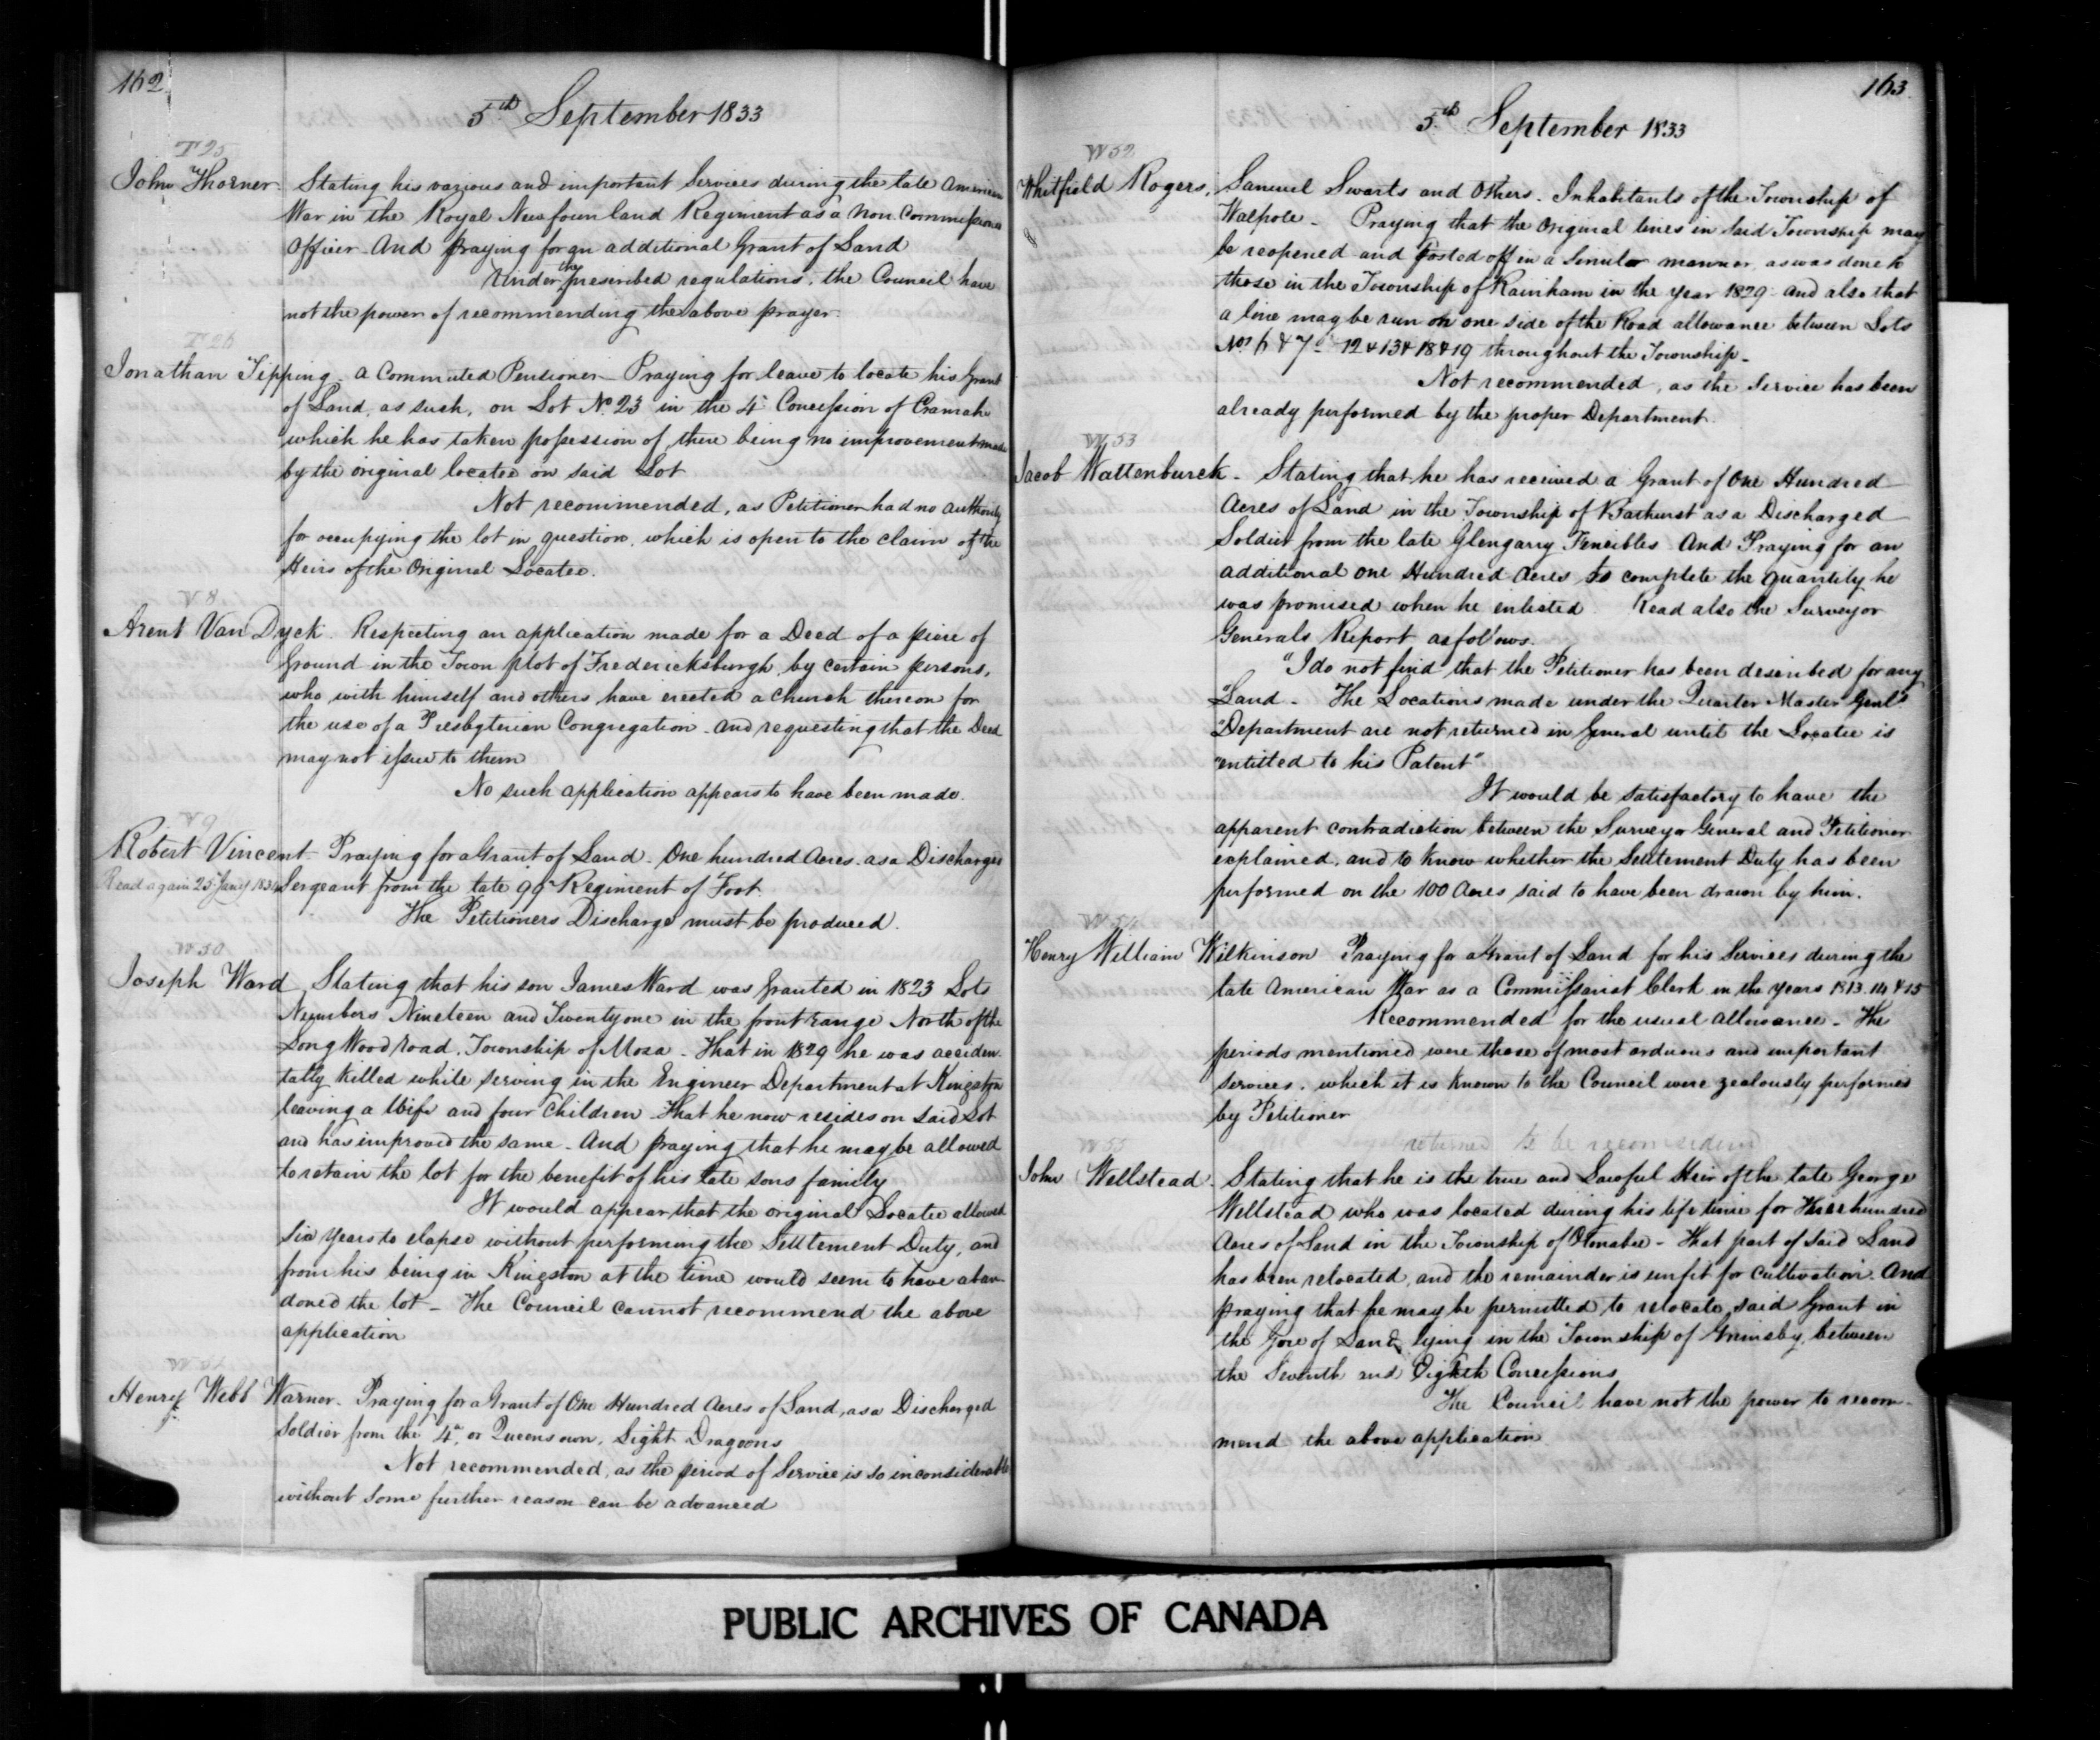 162
5th September 1833
T 25
John Thorner Stating his various and important Services during the late American
War in the Royal Newfounland Regiment as a Non Commissioned
Officer And praying for an additional Grant of Land
Under the prescribed regulations, the Council have
not the power of recommending the above prayer.
T 26
Jonathan Tipping. a Commuted Pensioner - Praying for leave to locate his Grant
of Land, as such, on Lot No. 23 in the 4th Concession of Cramahe
which he has taken possession of, there being no improvement made
by the original locatee on said Lot
Not recommended, as Petitioner had no authority
for occupying the lot in question, which is open to the claim of the
Heirs of the Original Locatee.
V 8
Arent Van Dyck. Respecting an application made for a Deed of a piece of
Ground in the Town plot of Fredericksburgh by certain persons,
who with himself and others have erected a Church thereon for
the use of a Presbyterian Congregation - and requesting that the Deed
may not issue to them
No such application appears to have been made.
V 9
Robert Vincent - Praying for a Grant of Land. One hundred Acres. as a Discharged
Read again 25 Jany 183 Sergeant from the late 99th Regiment of Foot.
The Petitioners Discharge must be produced.
W 50
Joseph Ward, Stating that his son James Ward was Granted in 1823 Lots
Numbers Nineteen and Twenty one in the front range North of the
Long Wood road, Township of Mosa - That in 1829 he was acciden
tally killed while serving in the Engineer Department at Kingston
leaving a Wife and four Children That he now resides on said Lot
and has improved the same - And praying that he may be allowed
to retain the lot for the benefit of his late sons family
It would appear that the original Locatee allowed
Six years to elapse without performing the Settlement Duty, and
from his being in Kingston at the time would seem to have aban
doned the lot - The Council cannot recommend the above
application
W 51
Henry Webb Warner. Praying for a Grant of One Hundred Acres of Land, as a Discharged
Soldier from the 4th, or Queens own, Light Dragoons
Not recommended, as the period of Service is so inconsiderable
without some further reason can be advanced
163
5th September 1833
W 52
Whitfield Rogers, Samuel Swarts and Others. Inhabitants of the Township of
Walpole - Praying that the Original lines in said Township may
be reopened and posted off in a Similar manner, as was done to
those in the Township of Rainham in the year 1829 and also that
a line may be run on one side of the Road allowance between Lots
Nos. 6 & 7 - 12 & 13 & 18 & 19 throughout the Township -
Not recommended, as the Service has been
already performed by the proper Department.
W 53
Jacob Wattenburck - Stating that he has received a Grant of One Hundred
Acres of Land in the Township of Bathurst as a Discharged
Soldier from the late Glengarry Fencibles And Praying for an
additional one Hundred Acres to complete the quantity he
was promised when he enlisted Read also the Surveyor
Generals Report as follows.
"I do not find that the Petitioner has been described for any
"Land - The Locations made under the Quarter Master Genls
"Department are not returned in General until the Locatee is
"entitled to his Patent"
It would be satisfactory to have the
apparent contradiction between the Surveyor General and Petitioner
explained, and to know whether the Settlement Duty has been
performed on the 100 Acres said to have been drawn by him.
W 54
Henry William Wilkinson Praying for a Grant of Land for his Services during the
late American War as a Commissariat Clerk in the years 1813. 14 & 15
Recommended for the usual allowance - The
periods mentioned were those of most arduous and important
services, which it is known to the Council were zealously performed
by Petitioner
returned to be reconsidered
W 55
John Wellstead - Stating that he is the true and Lawful Heir of the late George
Wellstead who was located during his life time for Three hundred
Acres of Land in the Township of Otonabee - That part of said Land
has been relocated, and the remainder is unfit for cultivation. And
praying that he may be permitted to relocate said Grant in
the Gore of Land lying in the Township of Grimsby, between
the Seventh and Eighth Concessions
The Council have not the power to recom-
mend the above application
PUBLIC ARCHIVES OF CANADA